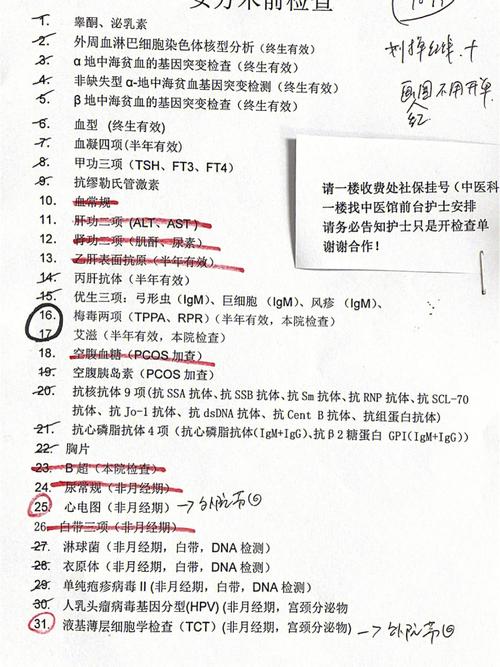 女方术前检查
1. 睾酮、泌乳素
2. 外周血淋巴细胞染色体核型分析（终生有效）
划掉红线.十
3. α地中海贫血的基因突变检查（终生有效）
4. 非缺失型α-地中海贫血基因突变检测（终生有效）
画圆不用开单
红
5. β地中海贫血的基因突变检查（终生有效）
6. 血型 （终生有效）
7. 血凝四项(半年有效)
8. 甲功三项（TSH、FT3、FT4）
9. 抗缪勒氏管激素
10. 血常规
11. 肝功二项 (ALT、AST)
12. 肾功二项（肌酐、尿素）
13. 乙肝表面抗原（半年有效）
请一楼收费处社保挂号（中医科
一楼找中医馆前台护士安排
请务必告知护士只是开检查单
谢谢合作！
14. 丙肝抗体（半年有效）
15. 优生三项：弓形虫（IgM）、巨细胞（IgM）、风疹（IgM）、
16. 梅毒两项（TPPA、RPR）（半年有效，本院检查）
17. 艾滋（半年有效，本院检查）
18. 空腹血糖（PCOS 加查）
19. 空腹胰岛素（PCOS 加查）
20. 抗核抗体 9 项(抗 SSA 抗体、抗 SSB 抗体、抗 Sm 抗体、抗 RNP 抗体、抗 SCL-70
抗体、抗 Jo-1 抗体、抗 dsDNA 抗体、抗 Cent B 抗体、抗组蛋白抗体)
21. 抗心磷脂抗体 4 项（抗心磷脂抗体(IgM+IgG)、抗β2 糖蛋白 GPI(IgM+IgG)）
22. 胸片
23. B 超（本院检查）
24. 尿常规（非月经期）
25. 心电图（非月经期）→外院带回
26. 白带三项（非月经期）
27. 淋球菌（非月经期，白带，DNA 检测）
28. 衣原体（非月经期，白带，DNA 检测）
29. 单纯疱疹病毒 II (非月经期，白带，DNA 检测)
30. 人乳头瘤病毒基因分型(HPV) (非月经期，宫颈分泌物
31. 液基薄层细胞学检查（TCT）(非月经期，宫颈分泌物) →外院带回